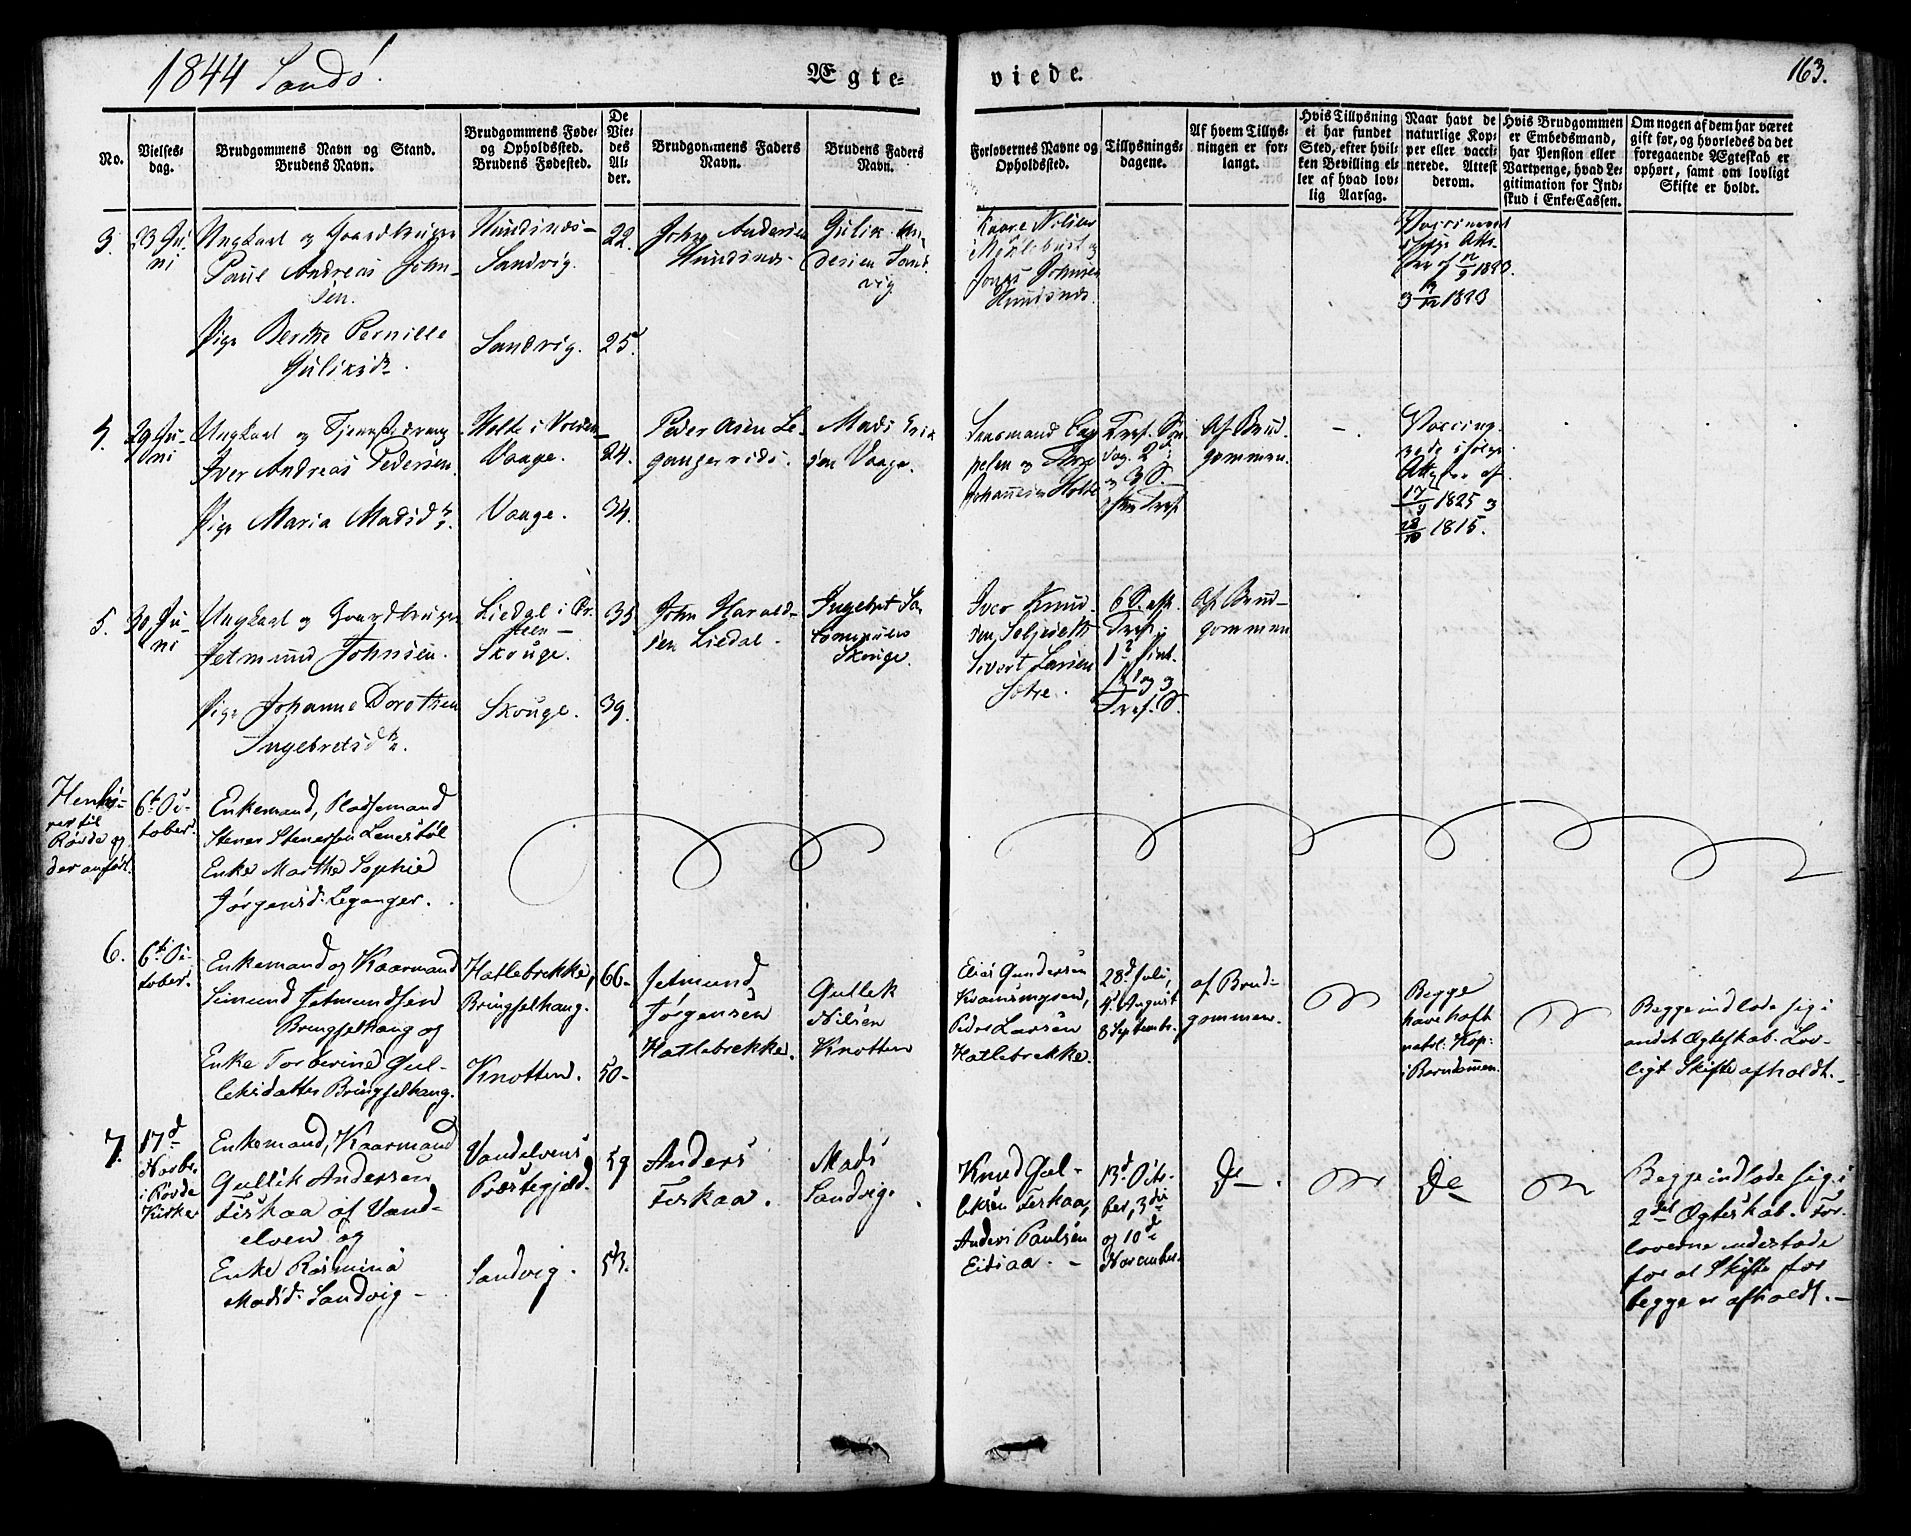 1844 Sandö.
Ægte-
viede.
163.
No.
Vielses-
dag.
Brudgommens Navn og Stand.
Brudens Navn.
Brudgommens Føde-
og Opholdssted.
Brudens Fødested.
De
Vie-
des
Al-
der.
Brudgommens Faders
Navn.
Brudens Faders
Navn.
Forlovernes Navne og
Opholdssted.
Tillysnings-
dagene.
Af hvem Tillys-
ningen er for-
langt.
Hvis Tillysning
ei har fundet
Sted, efter hvil-
ken Bevilling el-
ler af hvad lov-
lig Aarsag.
Naar havt de
naturlige Kop-
per eller vacci-
nerede. Attest
derom.
Hvis Brudgommen
er Embedsmand,
har Pension eller
Vartpenge, hvad Le-
gitimation for Ind-
skud i Enke-Cassen.
Om nogen af dem har været
gift før, og hvorledes da det
foregaaende Ægteskab er
ophørt, samt om lovligt
Skifte er holdt.
3.
23 Ju-
ni
Ungkarl og Gaardbruger
Paul Andreas John-
sen.
Pige Berthe Pernille
Guliksd.
Sandvig.
Sandvig.
22.
25.
John Andersen
Gulik An-
dersen Sand-
vig
Jonas Johnsen
1823
4.
29 Ju-
ni
Ungkarl og Tjenestedreng
Iver Andreas Pedersen.
Pige Maria Madsd.
Vaage.
Vaage.
24.
34.
Mads
sen Vaage.
Johannesen Holte
Af Brud-
gommen.
1825
1815.
5.
30 Ju-
ni
Ungkarl og Gaardbruger
Jetmund Johnsen.
Pige Johanne Dorothea
Ingebretsd.
Liedal i Ør-
sten
Skouge.
Skouge.
35
39.
John Harald-
sen Liedal.
Ingebret
Skouge.
Iver Knud-
sen
Sivert Larsen
Sætre.
Af Brud-
gommen
Henhö-
rer til
Røvde og
der anført.
6t Oc-
tober.
Enkemand, Pladsemand
Stener Stenersen Lenestøl
Enke Marthe Sophie
Jørgensd. Leganger.
6.
6t Oc-
tober.
Enkemand og Kaarmand
Simund Jetmundsen
Bringselhaug og
Enke Torberine Gul-
leksdatter Bringselhaug.
Hatlebrekke,
Bringselhaug.
Knotten.
66.
50.
Jetmund
Jørgensen
Hatlebrekke.
Gullek
Nilsen
Knotten
Elias Gundersen
Kramsmyren,
Peder Larsen
Hatlebrekke.
28d Juli,
4d August
8 Septembr.
af Brud-
gommen.
Begge
have haft
natrl: Kop:
i Barndommen.
Begge indlode sig i
andet Ægteskab. Lov-
ligt Skifte afholdt.
7.
17d
Novbr.
i Røvde
Kirke
Enkemand, Kaarmand
Gullik Andersen
Fiskaa af Vand-
elven og
Enke Rasmina
Madsd. Sandvig
Vandelvens
Præstegjæld.
Sandvig.
59
53.
Anders
Fiskaa.
Mads
Sandvig.
Knud Gul-
leksen Fiskaa,
Anders Paulsen
Eidsaa.
13d Octo-
ber, 3die
og 10d
November.
Do
Do
Begge indlode sig i
2det Ægteskab. For-
loverne indestode
for at Skifte for
begge er afholdt.